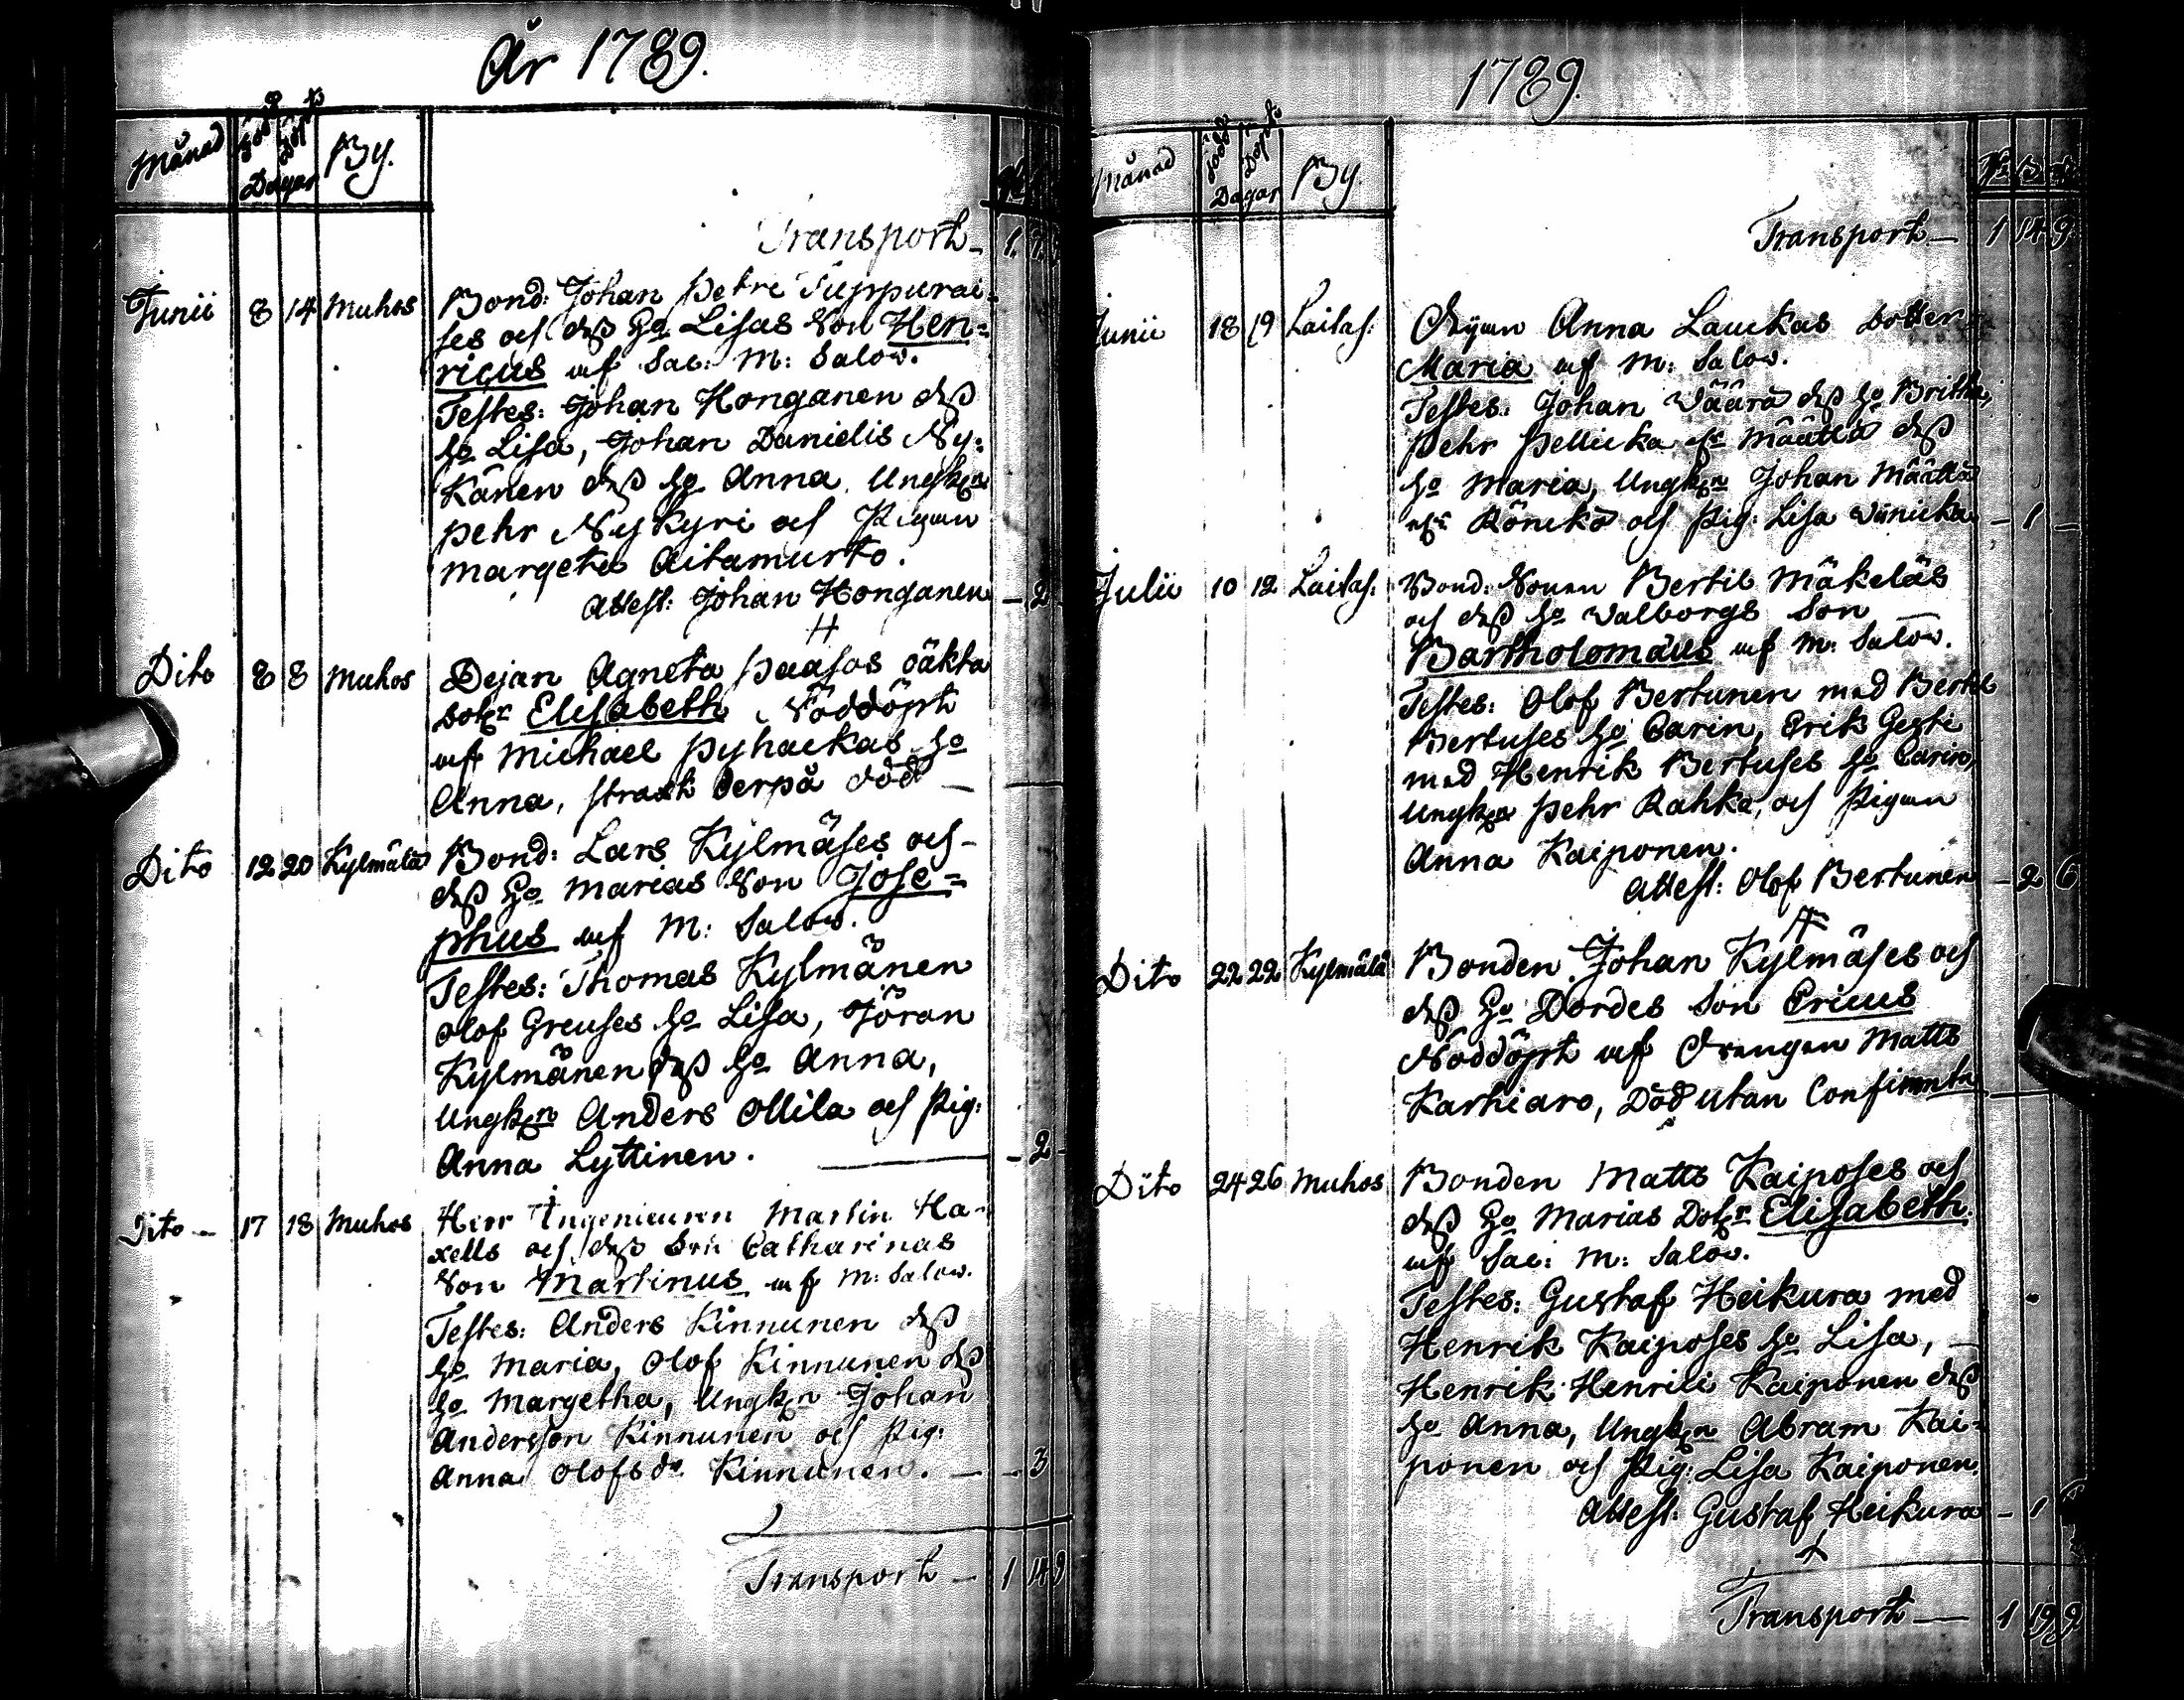 År 1789.
Månad Född Döpt Dagar By.
Transport 1. 7.
Junii 8 14 Muhos Bond: Johan Petri Tuppurai-
ses och deß Ho Lisas Son Hen=
ricus af Sac: M: Salov.
Testes: Johan Honganen deß
Ho Lisa, Johan Danielis Ny-
känen deß Ho Anna, Ungk:n
Pehr Nykyri och Pigan
Margeta Aitamurto.
Attest: Johan Honganen — 2 —
Dito 8 8 Muhos Dejan Agneta Paasos oäkta
Dotr Elisabeth Nöddöpt
af Michael Pyhäckas Ho
Anna, strax derpå död —
Dito 12 20 Kylmälä Bond: Lars Kylmäses och
deß Ho Marias Son Jose=
phus af M: Salov.
Testes: Thomas Kylmänen
Olof Greuses Ho Lisa, Jöran
Kylmänen deß Ho Anna,
Ungk:n Anders Ollila och Pig:
Anna Lyttinen. — 2 —
Dito — 17 18 Muhos Herr Ingenieuren Martin Ha-
xells och deß Fru Catharinas
Son Martinus af M: Salov.
Testes: Anders Kinnunen deß
Ho Maria, Olof Kinnunen deß
Ho Margetha, Ungk:n Johan
Andersson Kinnunen och Pig:
Anna Olofsdr Kinnunen. — — 3
Transport — 1 14 9
1789.
Månad Född Döpt Dagar By.
Transport — 1 14 9
Junii 18 19 Laitas: Enkan Anna Lauckas Dotter
Maria af M: Salov.
Testes: Johan Väärä deß Ho Britha,
Pehr Pellicka elr Määttä deß
Ho Maria, Ungk:n Johan Määttä
elr Rönckö och Pig: Lisa Viinicka — 1 —
Julii 10 12 Laitas: Bond: Sonen Bertil Mäkeläs
och deß Ho Valborgs Son
Bartholomäus af M: Salov.
Testes: Olof Bertunen med Bertil
Bertuses Ho Carin, Erik Gesti
med Henrik Bertuses Ho Carin,
Ungk:n Pehr Rahka, och Pigan
Anna Kaiponen.
Attest: Olof Bertunen — 2 6
Dito 22 22 Kylmälä Bonden Johan Kylmäses och
deß Ho Dordes Son Ericus
Nöddöpt af Drengen Matts
Karhiaro, Död utan Confirmtn
Dito 24 26 Muhos Bonden Matts Kaiposes och
deß Ho Marias Dotr Elisabeth
af Sac: M: Salov.
Testes: Gustaf Heikura med
Henrik Kaiposes Ho Lisa,
Henrik Henrici Kaiponen deß
Ho Anna, Ungk:n Abram Kai-
ponen och Pig: Lisa Kaiponen.
Attest: Gustaf Heikura — 1
Transport — 1 19 9